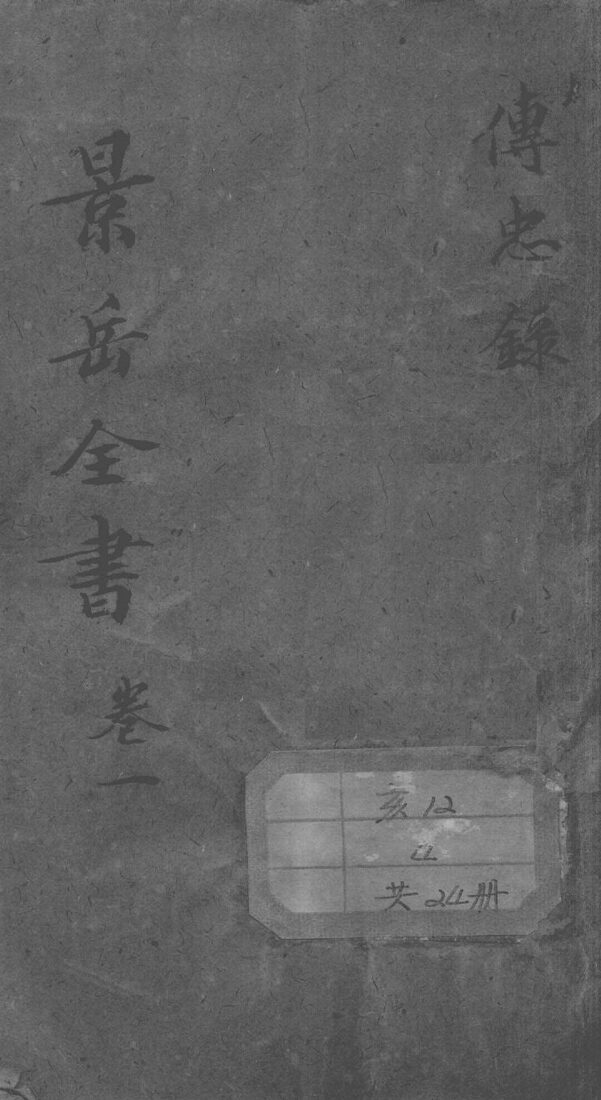 傳忠錄
景岳全書 卷一
亥12
共24册